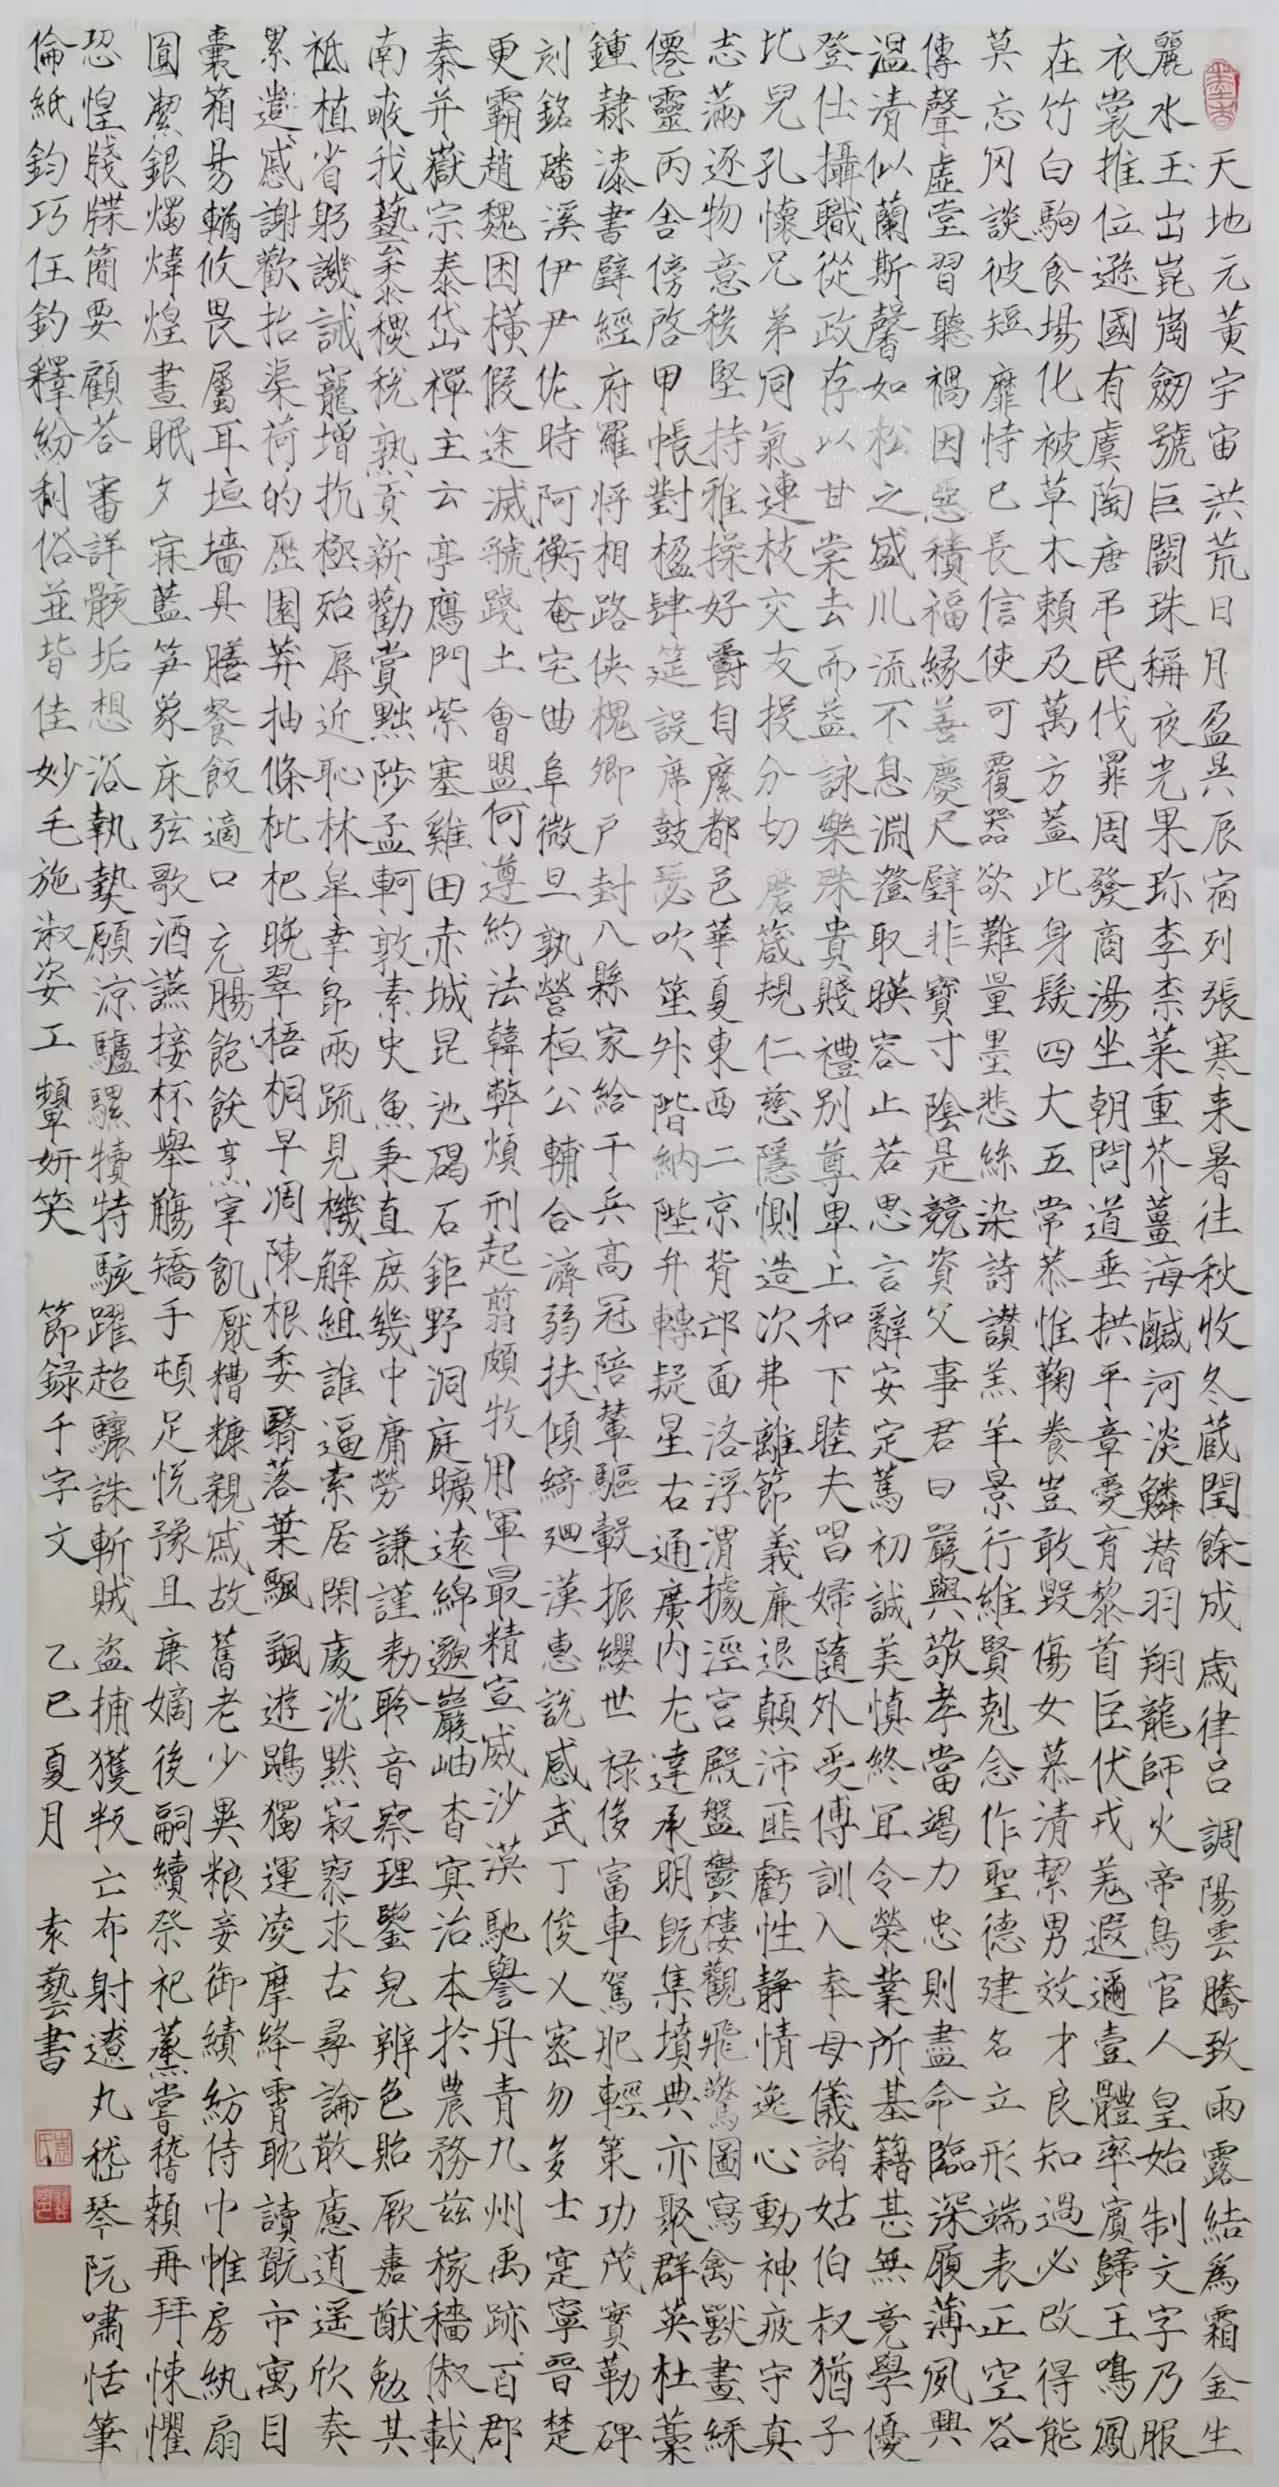 天地元黃宇宙洪荒日月盈昃辰宿列張寒来暑往秋收冬蔵閏餘成歲律吕調陽雲騰致雨露結為霜金生
麗水玉出崑崗劒號巨闕珠稱夜光果珎李柰菜重芥薑海鹹河淡鱗潛羽翔龍師火帝鳥官人皇始制文字乃服
衣裳推位遜國有虞陶唐弔民伐罪周發商湯坐朝問道垂拱平章愛育黎首臣伏戎羌遐邇壹體率賓歸王鳴鳳
在竹白駒食場化被草木賴及萬方蓋此身髮四大五常恭惟鞠養豈敢毀傷女慕清絜男效才良知過必改得能
莫忘罔談彼短靡恃己長信使可覆器欲難量墨悲絲染詩讃羔羊景行維賢剋念作聖德建名立形端表正空谷
傳聲虛堂習聽禍因惡積福緣善慶尺璧非寶寸陰是競資父事君曰嚴與敬孝當竭力忠則盡命臨深履薄夙興
温清似蘭斯馨如松之盛川流不息淵澄取暎容止若思言辭安定篤初誠美慎終宜令榮業所基籍甚無竟學優
登仕攝職從政存以甘棠去而益詠樂殊貴賤禮别尊卑上和下睦夫唱婦隨外受傅訓入奉母儀諸姑伯叔猶子
比兒孔懷兄弟同氣連枝交友投分切磨箴規仁慈隱惻造次弗離節義廉退顛沛匪虧性静情逸心動神疲守真
志滿逐物意移堅持雅操好爵自縻都邑華夏東西二京背邙面洛浮渭據涇宮殿盤鬱樓觀飛驚圖寫禽獸畫綵
僊靈丙舍傍啓甲帳對楹肆筵設席鼓瑟吹笙升階納陛弁轉疑星右通廣内左達承明既集墳典亦聚群英杜藁
鍾隸漆書壁經府羅将相路俠槐卿户封八縣家給千兵高冠陪輦驅轂振纓世祿侈富車駕肥輕策功茂實勒碑
刻銘磻溪伊尹佐時阿衡奄宅曲阜微旦孰營桓公輔合濟弱扶傾綺迴漢惠說感武丁俊乂密勿多士寔寧晉楚
更霸趙魏困橫假途滅虢踐土會盟何遵約法韓弊煩刑起翦頗牧用軍最精宣威沙漠馳譽丹青九州禹跡百郡
秦并嶽宗泰岱禪主云亭鴈門紫塞雞田赤城昆池碣石鉅野洞庭曠遠綿邈巖岫杳冥治本扵農務兹稼穡俶載
南畝我藝黍稷稅熟貢新勸賞黜陟孟軻敦素史魚秉直庶幾中庸勞謙謹勑聆音察理鑒皃辨色貽厥嘉猷勉其
祗植省躬譏誡寵增抗極殆辱近恥林皋幸即兩疏見機解組誰逼索居閑處沈默寂寥求古尋論散慮逍遥欣奏
累遣慼謝歡招渠荷的歷園莽抽條枇杷晚翠梧桐早凋陳根委翳落葉飄颻遊鵾獨運凌摩絳霄耽讀翫市寓目
囊箱易輶攸畏屬耳垣墻具膳餐飯適口充腸飽飫烹宰飢厭糟糠親戚故舊老少異粮妾御績紡侍巾帷房紈扇
圓潔銀燭煒煌晝眠夕寐藍笋象床弦歌酒讌接杯舉觴矯手頓足悅豫且康嫡後嗣續祭祀蒸嘗稽顙再拜悚懼
恐惶牋牒簡要顧答審詳骸垢想浴執熱願涼驢騾犢特駭躍超驤誅斬賊盗捕獲叛亡布射遼丸嵇琴阮嘯恬筆
倫紙鈞巧任釣釋紛利俗並皆佳妙毛施淑姿工顰妍笑 節録千字文 乙巳夏月 袁藝書